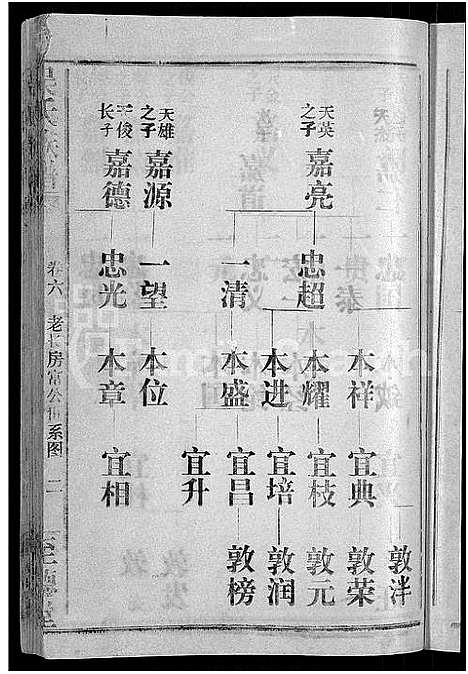 天英之子 嘉亮
天雄之子 嘉源
天俊长子 嘉德
忠超
一清
一望
忠光
本祥
本耀
本进
本盛
本位
本章
宜典
宜枝
宜培
宜昌
宜升
宜相
敦泮
敦荣
敦元
敦润
敦榜
卷六 老长房常公 系图 二